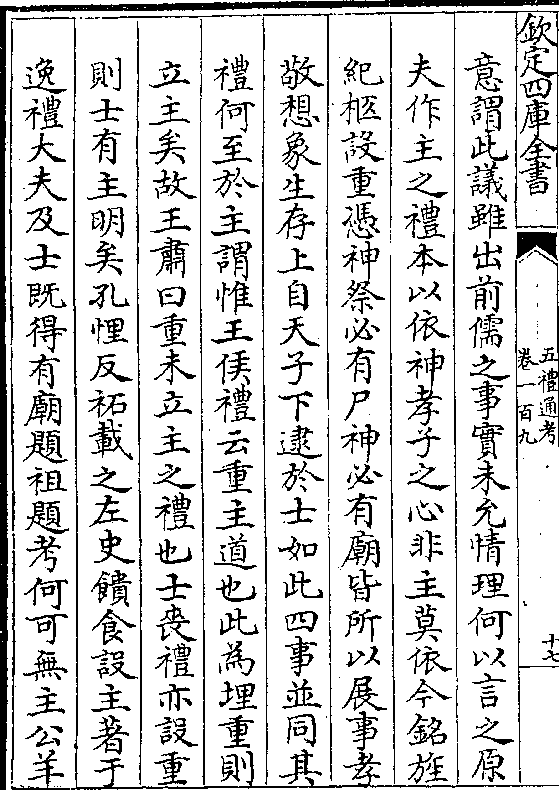 欽定四庫全書
五禮通考
卷一百九
十七
意謂此議雖出前儒之事實未允情理何以言之原
夫作主之禮本以依神孝子之心非主莫依今銘旌
紀柩設重憑神祭必有尸神必有廟皆所以展事孝
敬想象生存上自天子下逮於士如此四事並同其
禮何至於主謂惟王侯禮云重主道也此為埋重則
立主矣故王肅曰重未立主之禮也士喪禮亦設重
則士有主明矣孔悝反祏載之左史饋食設主著于
逸禮大夫及士既得有廟題祖題考何可無主公羊